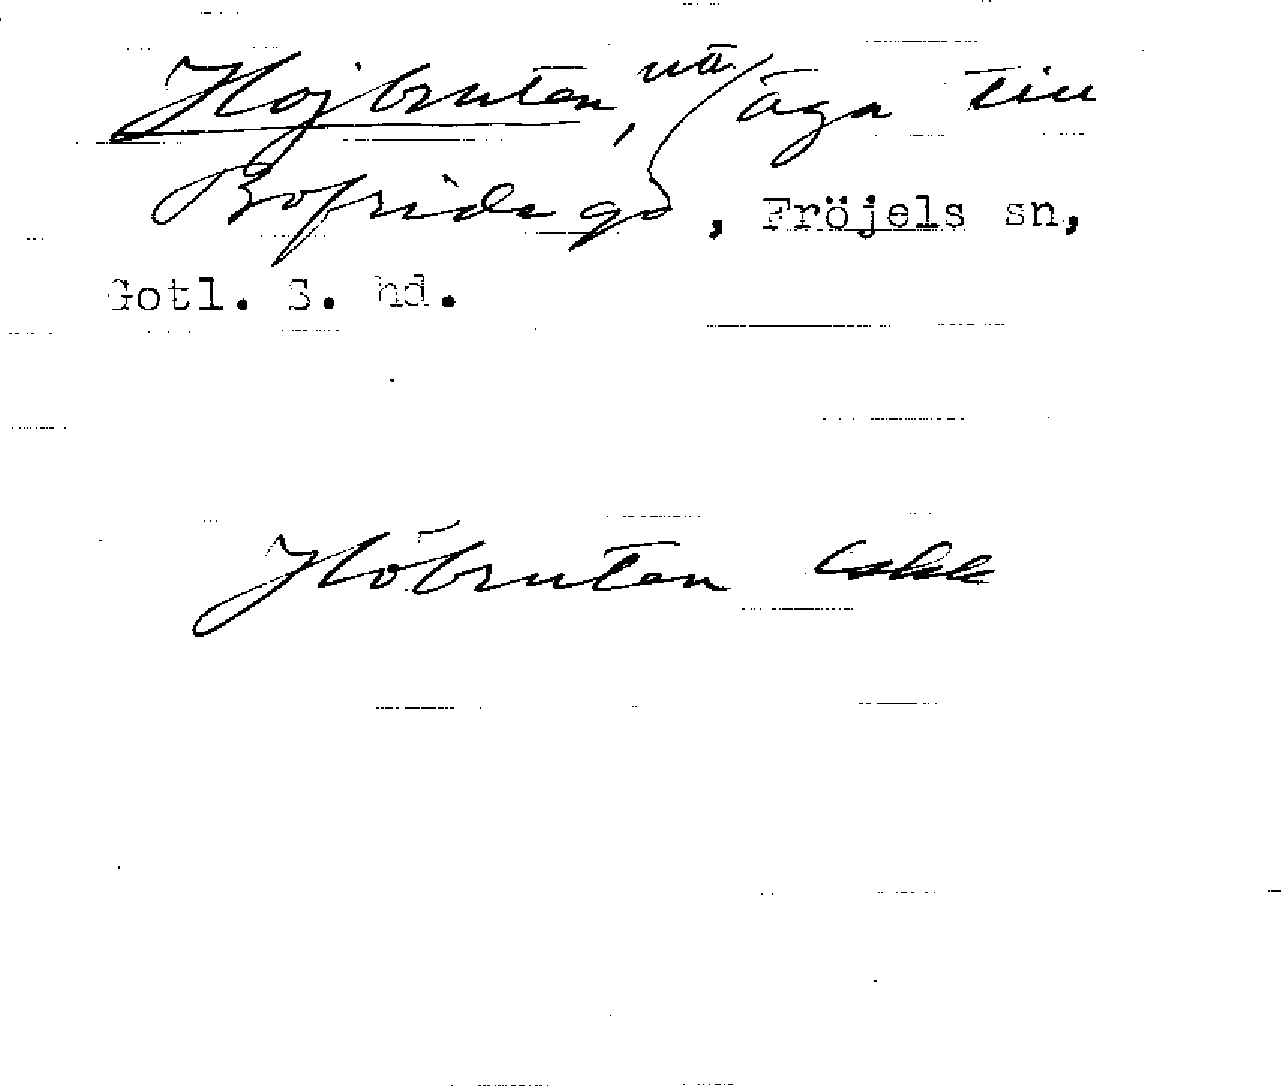 Hojbruten, äga till
Bofride gd, Fröjels sn,
Gotl. S. hd.
Höbruten